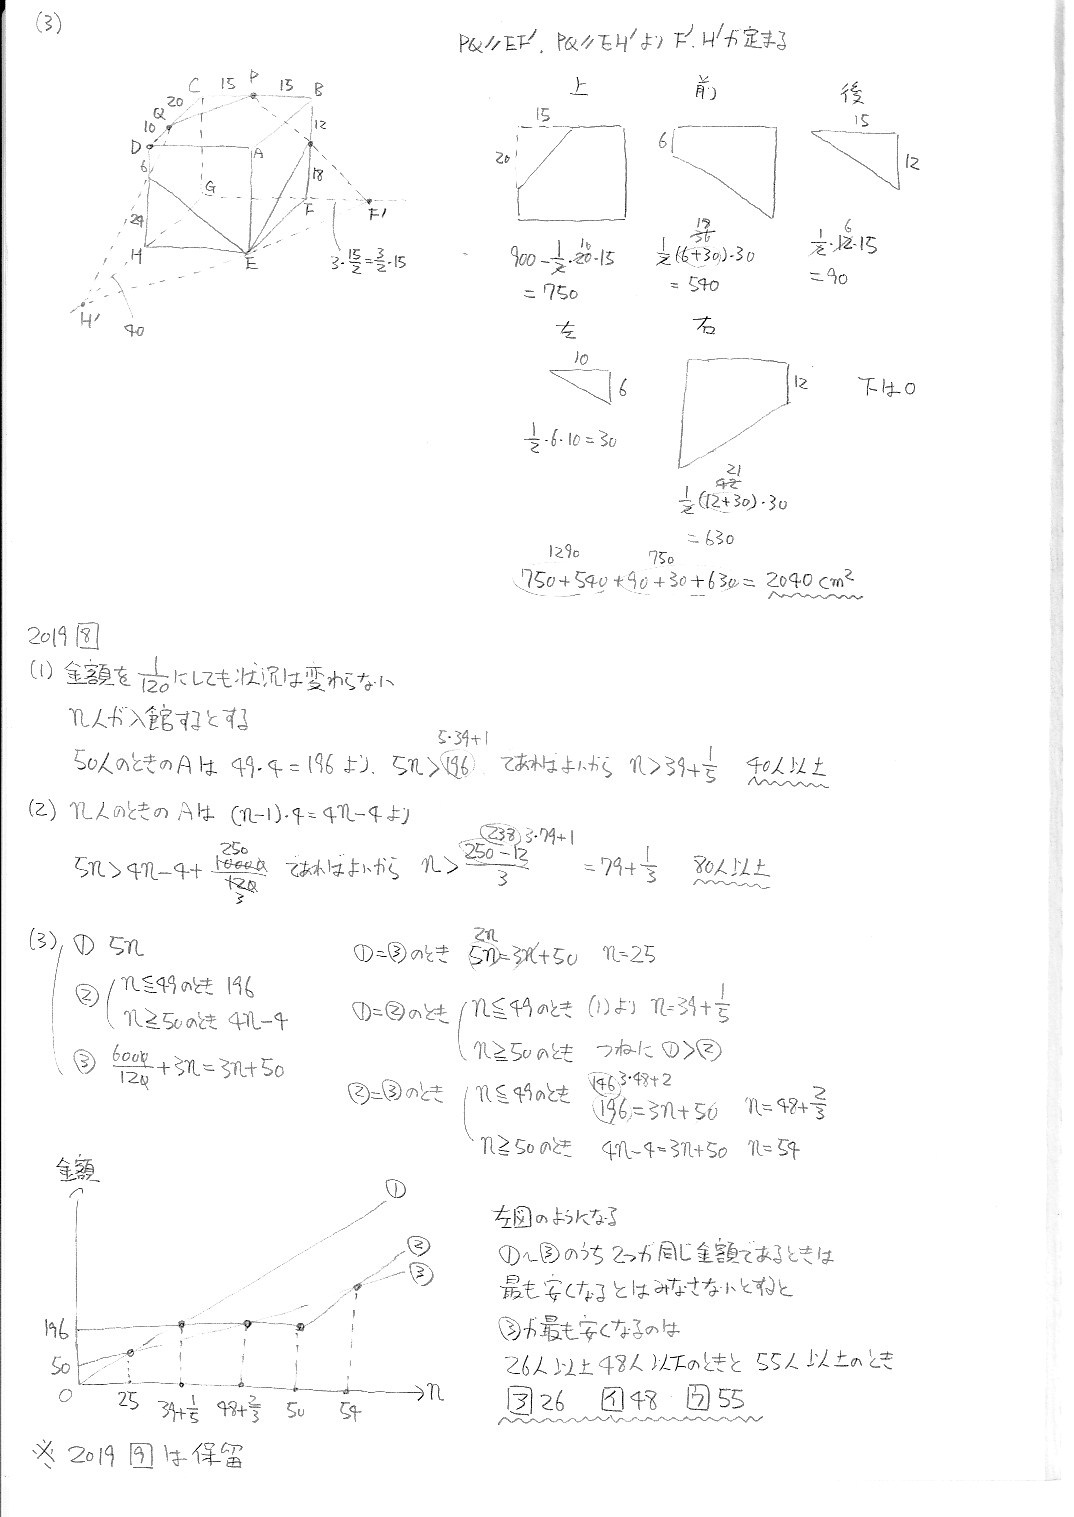 (3)
PQ//EF', PQ//EH'より F', H'が定まる
C 15 P 15 B
20
Q
10
12
D
A
6
G
18
F
F'
24
H
E
3・15/2=3/2・15
H'
40
上
15
20
900-1/2・20・15
10
=750
前
6
18
36
1/2(6+30)・30
=540
後
15
12
6
1/2・12・15
=90
左
10
6
1/2・6・10=30
右
12
21
42
1/2(12+30)・30
=630
下は0
1290
750
750+540+90+30+630=2040cm²
2019 8
(1) 金額を1/120にしても状況は変わらない
n人が入館するとする
5・39+1
50人のときのAは 49・4=196より, 5n>196 であればよいから n>39+1/5 40人以上
(2) n人のときのAは (n-1)・4=4n-4より
250
238 3・79+1
5n>4n-4+10000/120 であればよいから n>250-12/3 =79+1/3 80人以上
3
(3) ① 5n
② n≦49のとき 196
n≧50のとき 4n-4
③ 6000/120+3n=3n+50
2n
①=③のとき 5n=3n+50 n=25
①=②のとき n≦49のとき (1)より n=39+1/5
n≧50のとき つねに ①>②
146 3・48+2
②=③のとき n≦49のとき 196=3n+50 n=48+2/3
n≧50のとき 4n-4=3n+50 n=54
金額
①
②
③
196
50
0
25 39+1/5 48+2/3 50 54 n
左図のようになる
①~③のうち2つが同じ金額であるときは
最も安くなるとはみなさないとすると
③が最も安くなるのは
26人以上48人以下のときと 55人以上のとき
ア 26 イ 48 ウ 55
※ 2019 9 は保留